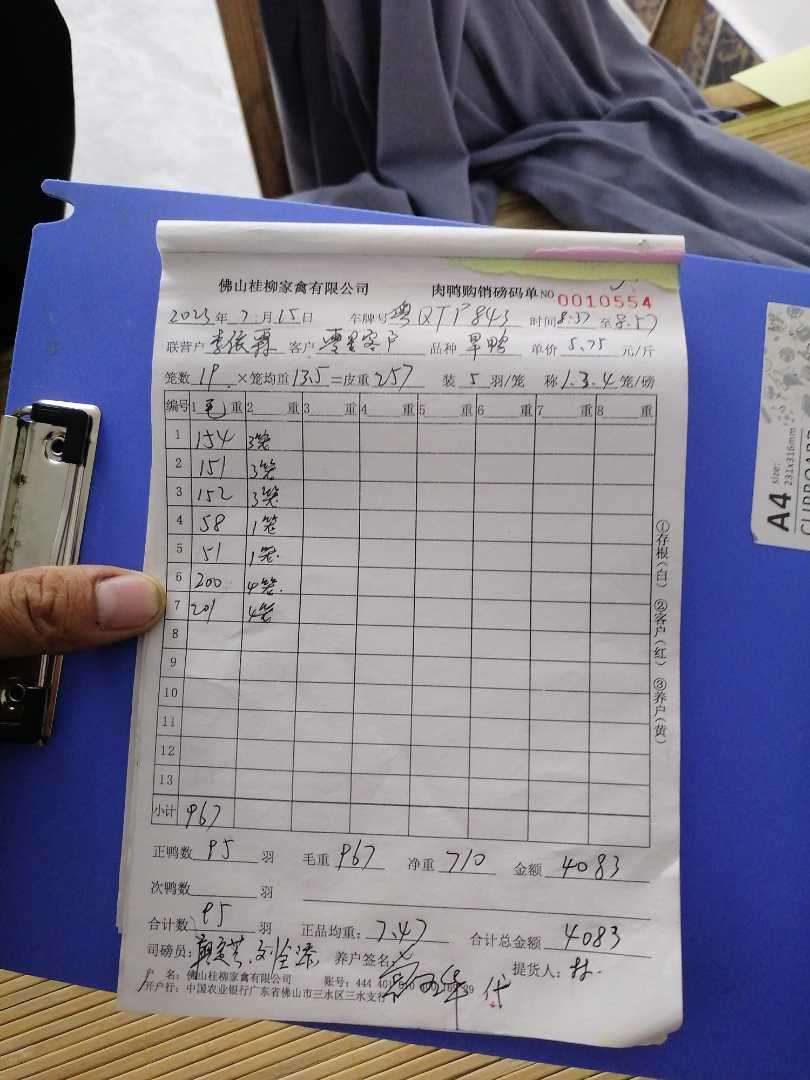 佛山桂柳家禽有限公司 肉鸭购销磅码单 NO 0010554
2023年7月15日 车牌号 粤QTP843 时间8:37至8:57
联营户 客户 零星客户 品种 旱鸭 单价 5.75 元/斤
笼数 19 ×笼均重 13.5 =皮重 257 装 5 羽/笼 称 1.3.4 笼/磅
编号 1 毛 重 2 重 3 重 4 重 5 重 6 重 7 重 8 重
1 154 3笼
2 151 3笼
3 152 3笼
4 58 1笼
5 51 1笼.
6 200 4笼.
7 201 4笼
8
9
10
11
12
13
小计 967
正鸭数 95 羽 毛重 967 净重 710 金额 4083
次鸭数 羽
合计数 95 羽 正品均重: 7.47 合计总金额 4083
司磅员: 养户签名: 代 提货人: 林.
户 名: 佛山桂柳家禽有限公司 账号: 444 401
开户行: 中国农业银行广东省佛山市三水区三水支行
①存根(白) ②客户(红) ③养户(黄)
A4 size: 231x316mm
CLIPBOARD